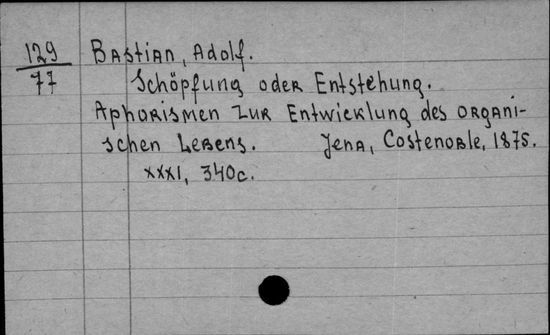 129
77
Bastian, Adolf.
Schöpfung oder Entstehung.
Aphorismen zur Entwicklung des organi-
schen Lebens. Jena, Costenoble, 1875.
XXXI, 340c.